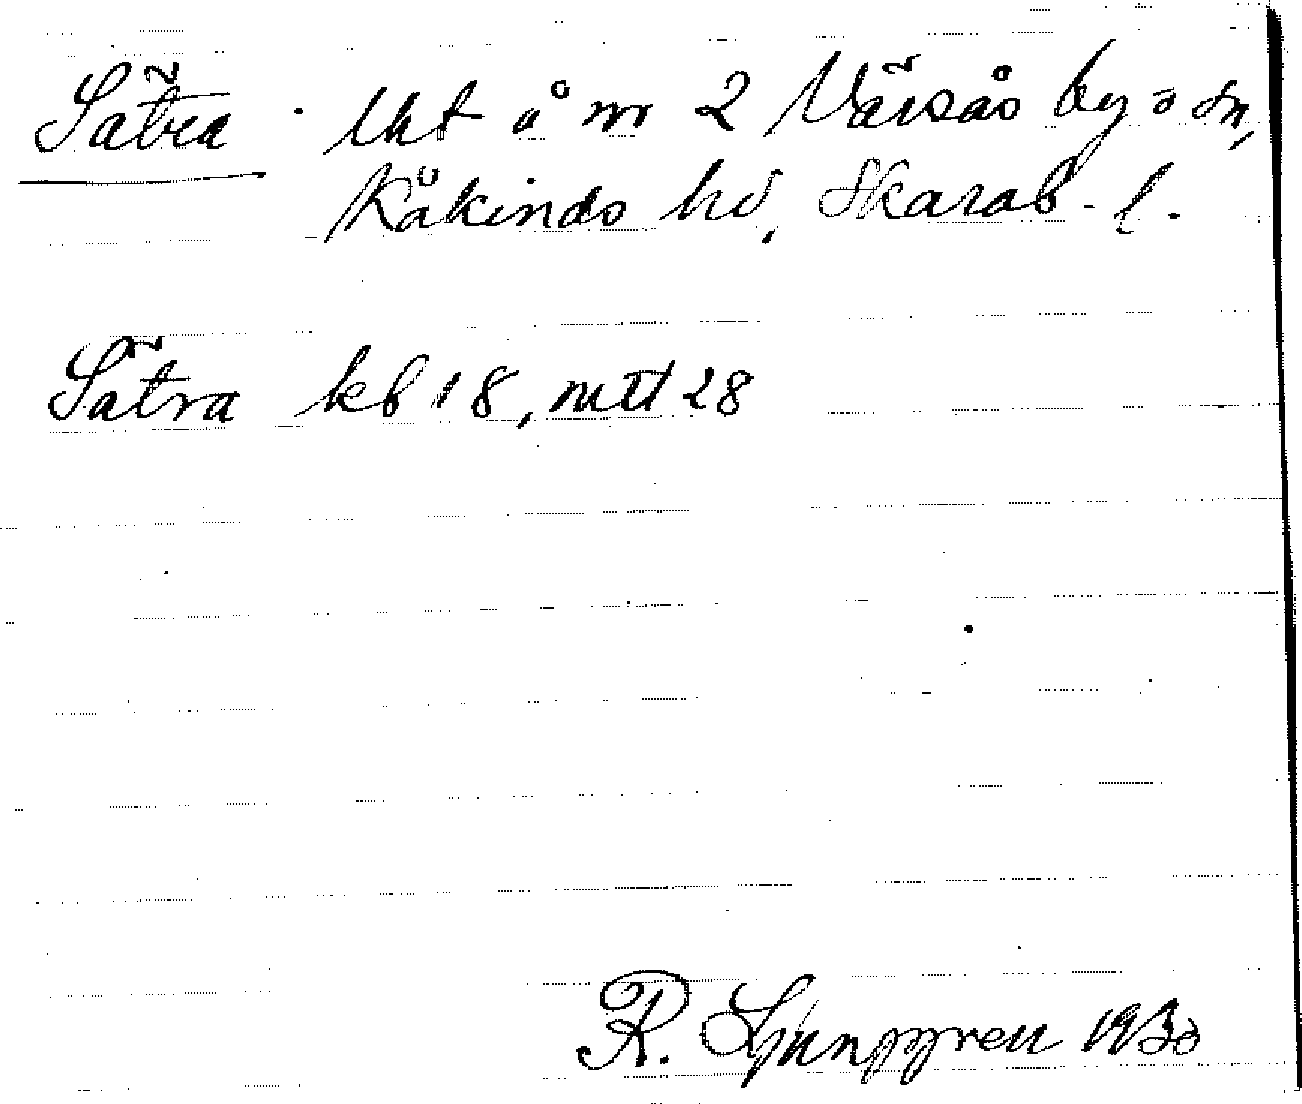 Sätra. Lht å nr 2 Värsås by o sn,
Kåkinds hd, Skarab. l.
Sätra kb 18, mtl 28
R. Ljunggren 1930